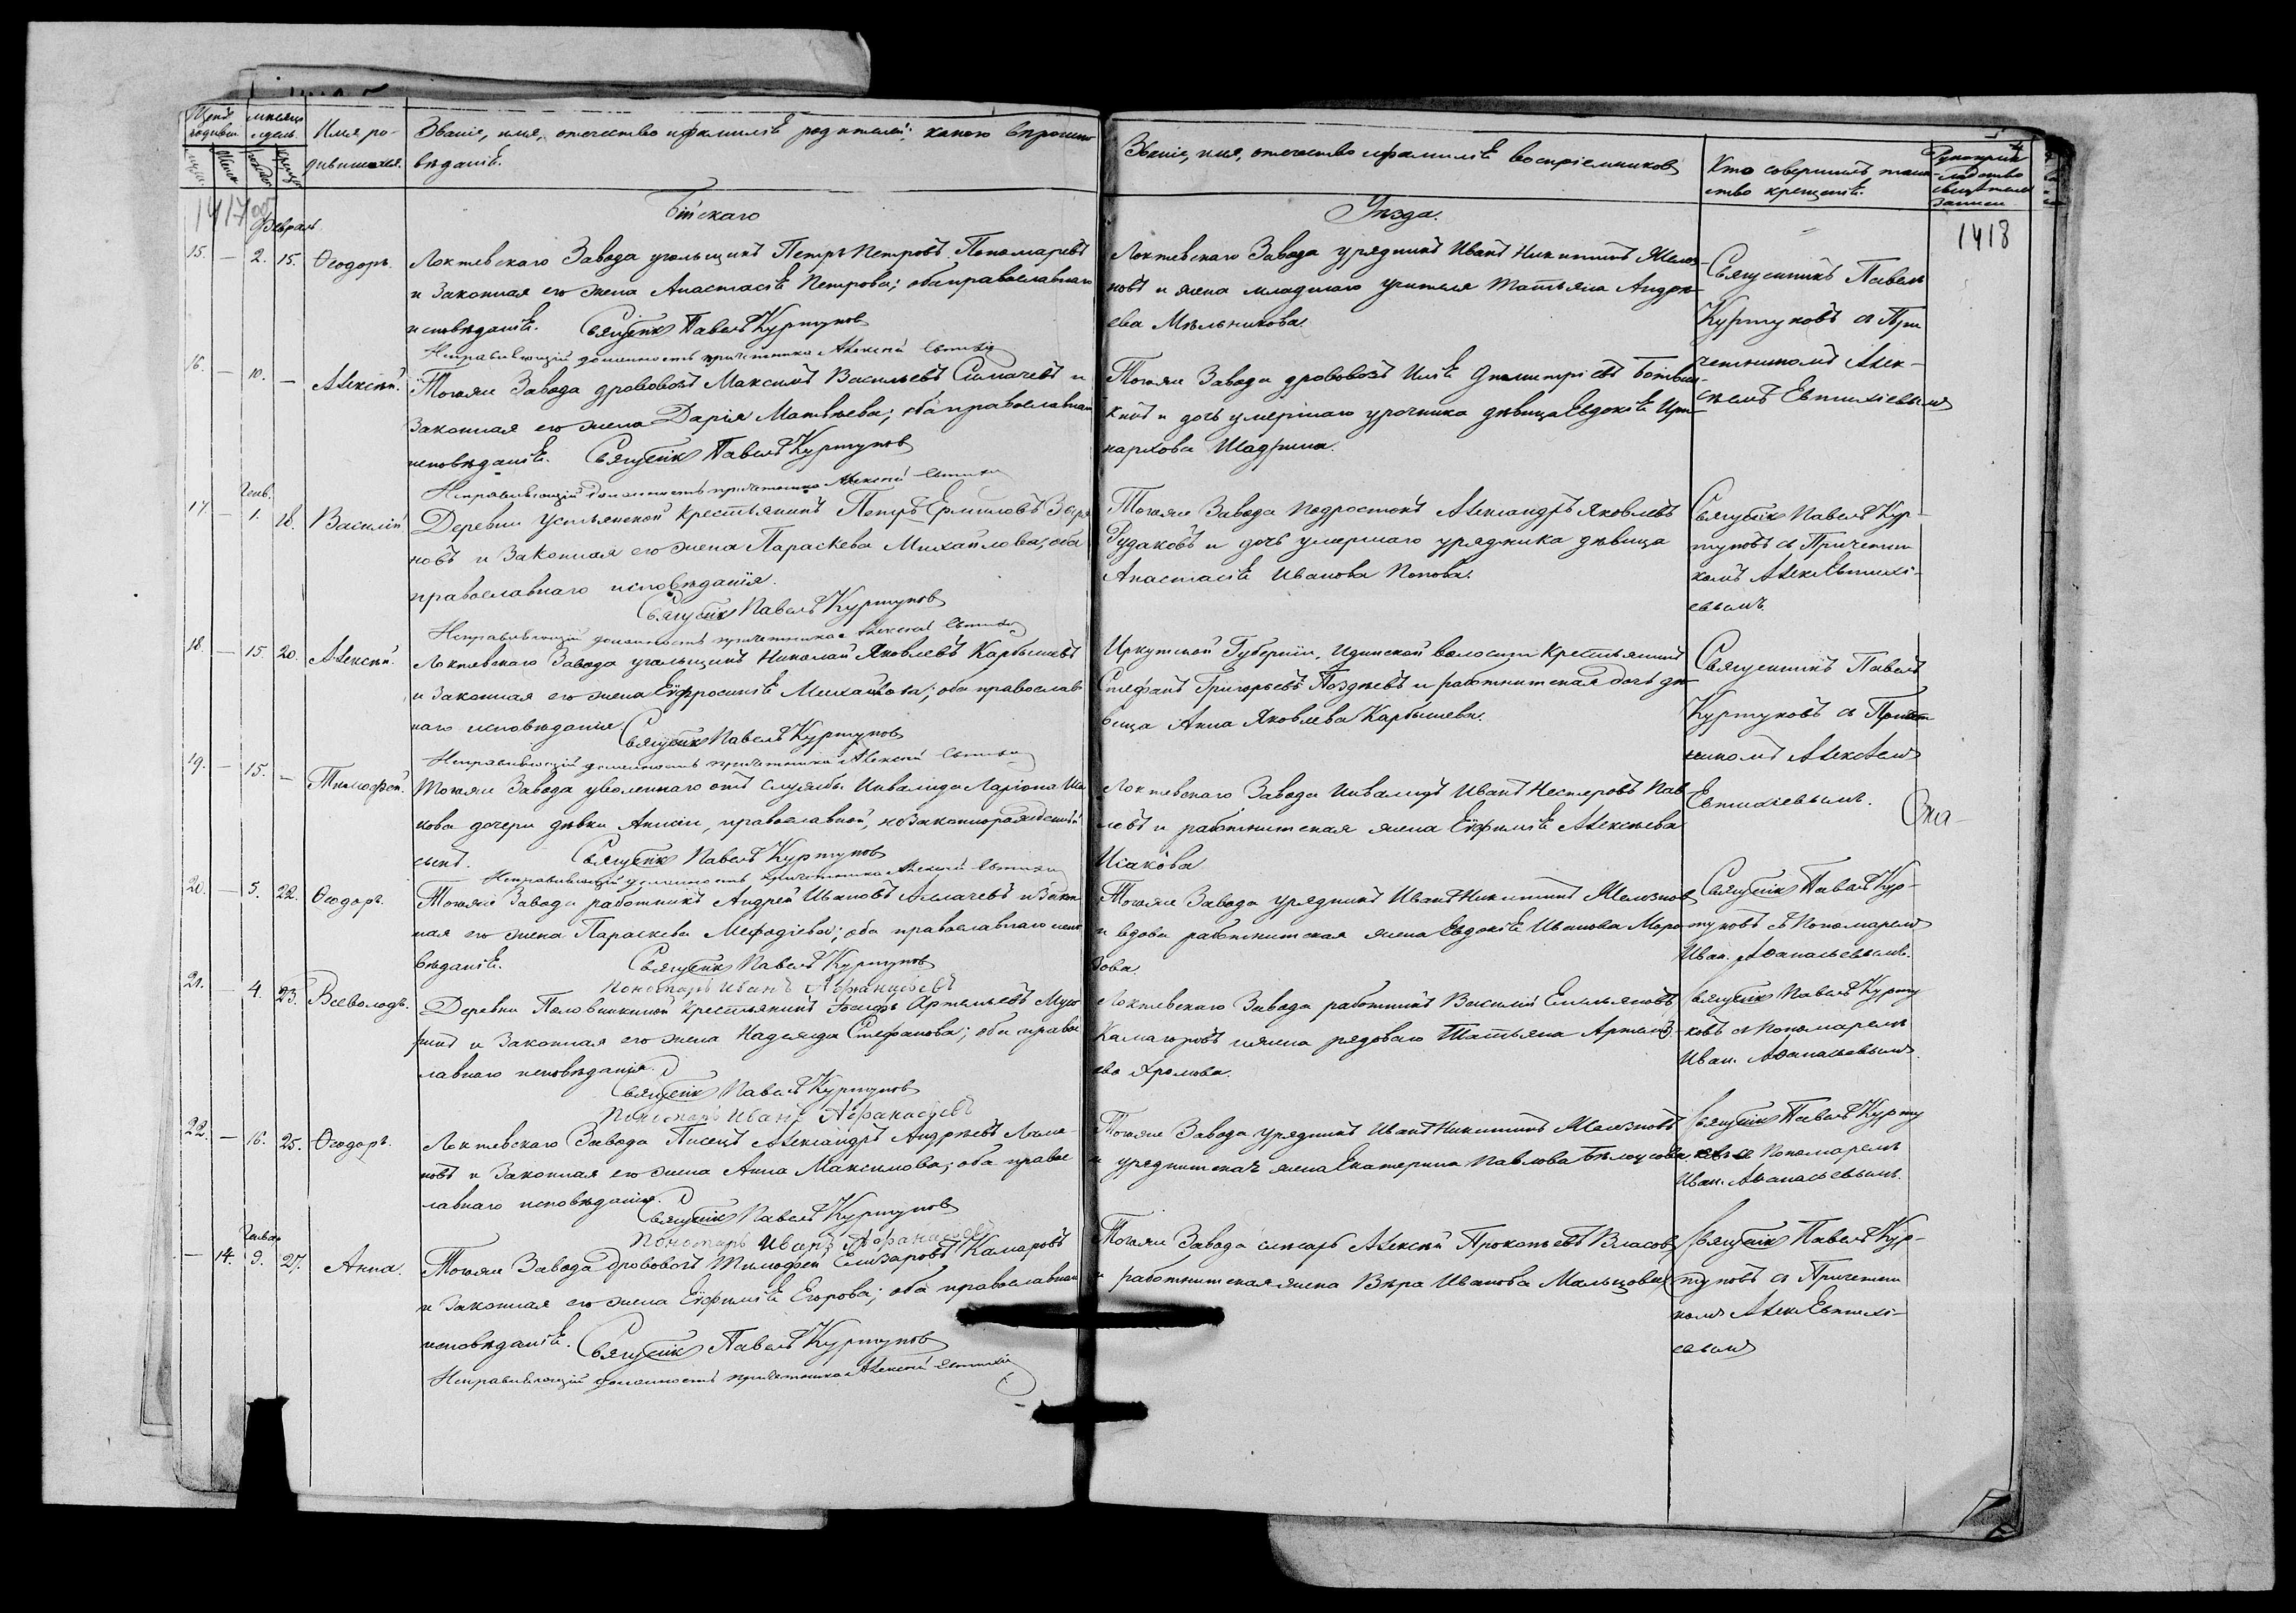 Имя ро-
дившихся.
Званіе, имя, отечество и фамилія родителей; какого вѣроиспо-
вѣданія.
Званіе, имя, отечество и фамилія воспріемниковъ
Кто совершилъ таин-
ство крещенія.
1417 об
1418
Февраль.
Бійскаго
Уѣзда.
15. — 2. 15. Ѳеодоръ.
Локтевскаго Завода угольщикъ Петръ Петровъ Пономаревъ
и законная его жена Анастасія Петрова; оба православнаго
исповѣданія. Священникъ Павелъ Куртуковъ
Исправляющій должность причетника Алексѣй
Локтевскаго Завода урядникъ Иванъ Никитинъ Желез-
новъ и жена младшаго учителя Татьяна Андре-
ева Мѣльникова
Священникъ Павелъ
Куртуковъ съ При
четникомъ Алек-
сѣемъ Евтихіевымъ
16. — 10. — Алексѣй.
Тогоже Завода дрововозъ Максимъ Васильевъ Симачевъ и
законная его жена Дарія Матвѣева; оба православнаго
исповѣданія. Священникъ Павелъ Куртуковъ
Исправляющій должность причетника Алексѣй
Тогоже Завода дрововозъ Илія Димитріевъ
и дочь умершаго урочника дѣвица Евдокія Ири-
нархова Шадрина.
17. — 1. 18. Василій
Деревни Устьянской крестьянинъ Петръ Ермиловъ Зыря-
новъ и законная его жена Параскева Михайлова; оба
православнаго исповѣданія.
Священникъ Павелъ Куртуковъ
Исправляющій должность причетника Алексѣй
Тогоже Завода подростокъ Александръ Яковлевъ
Рудаковъ и дочь умершаго урядника дѣвица
Анастасія Иванова Попова.
Священникъ Павелъ Кур-
туковъ съ Причетни
комъ Алек. Евтихі-
евымъ.
18. — 15. 20. Алексѣй.
Локтевскаго Завода угольщикъ Николай Яковлевъ Карбышевъ
и законная его жена Евфросинія Михайлова; оба православ-
наго исповѣданія Священникъ Павелъ Куртуковъ
Исправляющій должность причетника Алексѣй
Иркутской Губерніи, Идинской волости крестьянинъ
Стефанъ Григорьевъ Позднѣевъ и работничская дочь дѣ-
вица Анна Яковлева Карбышева.
Священникъ Павелъ
Куртуковъ съ Причет
никомъ Алексѣемъ
Евтихіевымъ.
19. — 15. — Тимофей.
Тогоже Завода уволеннаго отъ службы инвалида Ларіона
кова дочери дѣвки Анисіи, православной, незаконнорожденный
сынъ. Священникъ Павелъ Куртуковъ
Исправляющій должность причетника Алексѣй
Локтевскаго Завода инвалидъ Иванъ Нестеровъ Пав-
ловъ и работничская жена Евфимія Алексѣева
Исакова
20. — 5. 22. Ѳеодоръ.
Тогоже Завода работникъ Андрей Ивановъ и закон-
ная его жена Параскева Мефодіева; оба православнаго испо
вѣданія. Священникъ Павелъ Куртуковъ
Пономарь Иванъ Афанасьевъ
Тогоже Завода урядникъ Иванъ Никитинъ Железновъ
и вдова работничская жена Евдокія Иванова Моро-
зова.
Священникъ Павелъ Кур-
туковъ съ Пономаремъ
Иван. Афанасьевымъ.
21. — 4. 23. Всеволодъ.
Деревни Половинкиной крестьянинъ Іосифъ Артемьевъ
и законная его жена Надежда Стефанова; оба правос
лавнаго исповѣданія.
Священникъ Павелъ Куртуковъ
Пономарь Иванъ Афанасьевъ
Локтевскаго Завода работникъ Василій Емельяновъ
и жена рядоваго Татьяна Артемь-
ева Хромова.
Священникъ Павелъ Курту
ковъ съ Пономаремъ
Иван. Афанасьевымъ.
22. — 16. 25. Ѳеодоръ.
Локтевскаго Завода Писецъ Александръ Андреевъ
новъ и законная его жена Анна Максимова; оба правос
лавнаго исповѣданія.
Священникъ Павелъ Куртуковъ
Пономарь Иванъ Афанасьевъ
Тогоже Завода урядникъ Иванъ Никитинъ Железновъ
и урядничская жена Екатерина Павлова Бѣлоусова
Священникъ Павелъ Курту
ковъ съ Пономаремъ
Иван. Афанасьевымъ.
— 14. 9. 27. Анна.
Тогоже Завода дрововозъ Тимофей Елизаровъ Камаровъ
и законная его жена Евфимія Егорова; оба православнаго
исповѣданія. Священникъ Павелъ Куртуковъ
Исправляющій должность причетника Алексѣй
Тогоже Завода слесарь Алексѣй Прокопьевъ Власовъ
и работничская жена Вѣра Иванова Мальцова
Священникъ Павелъ Кур-
туковъ съ Причетни
комъ Алек. Евтихі-
евымъ